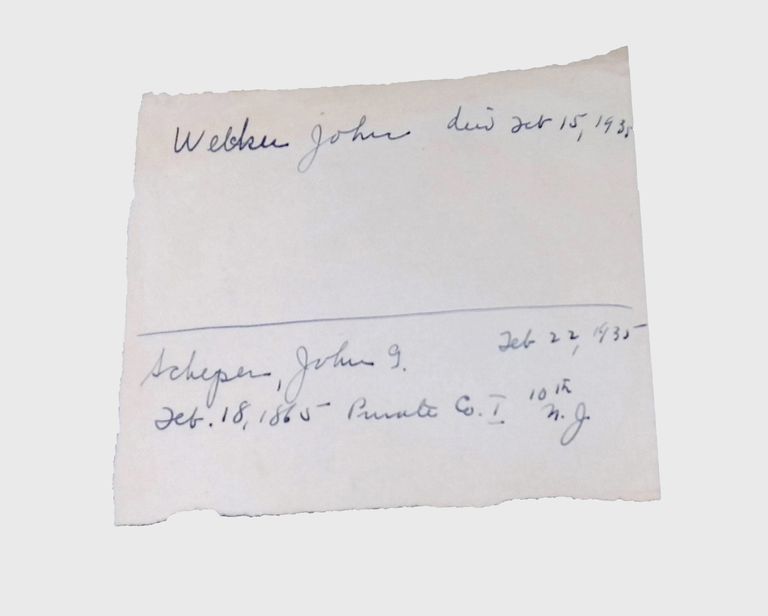 Welker John died Feb 15, 1935
Scheper, John G. Feb 22, 1935
Feb. 18, 1865 Private Co. I 10th N. J.